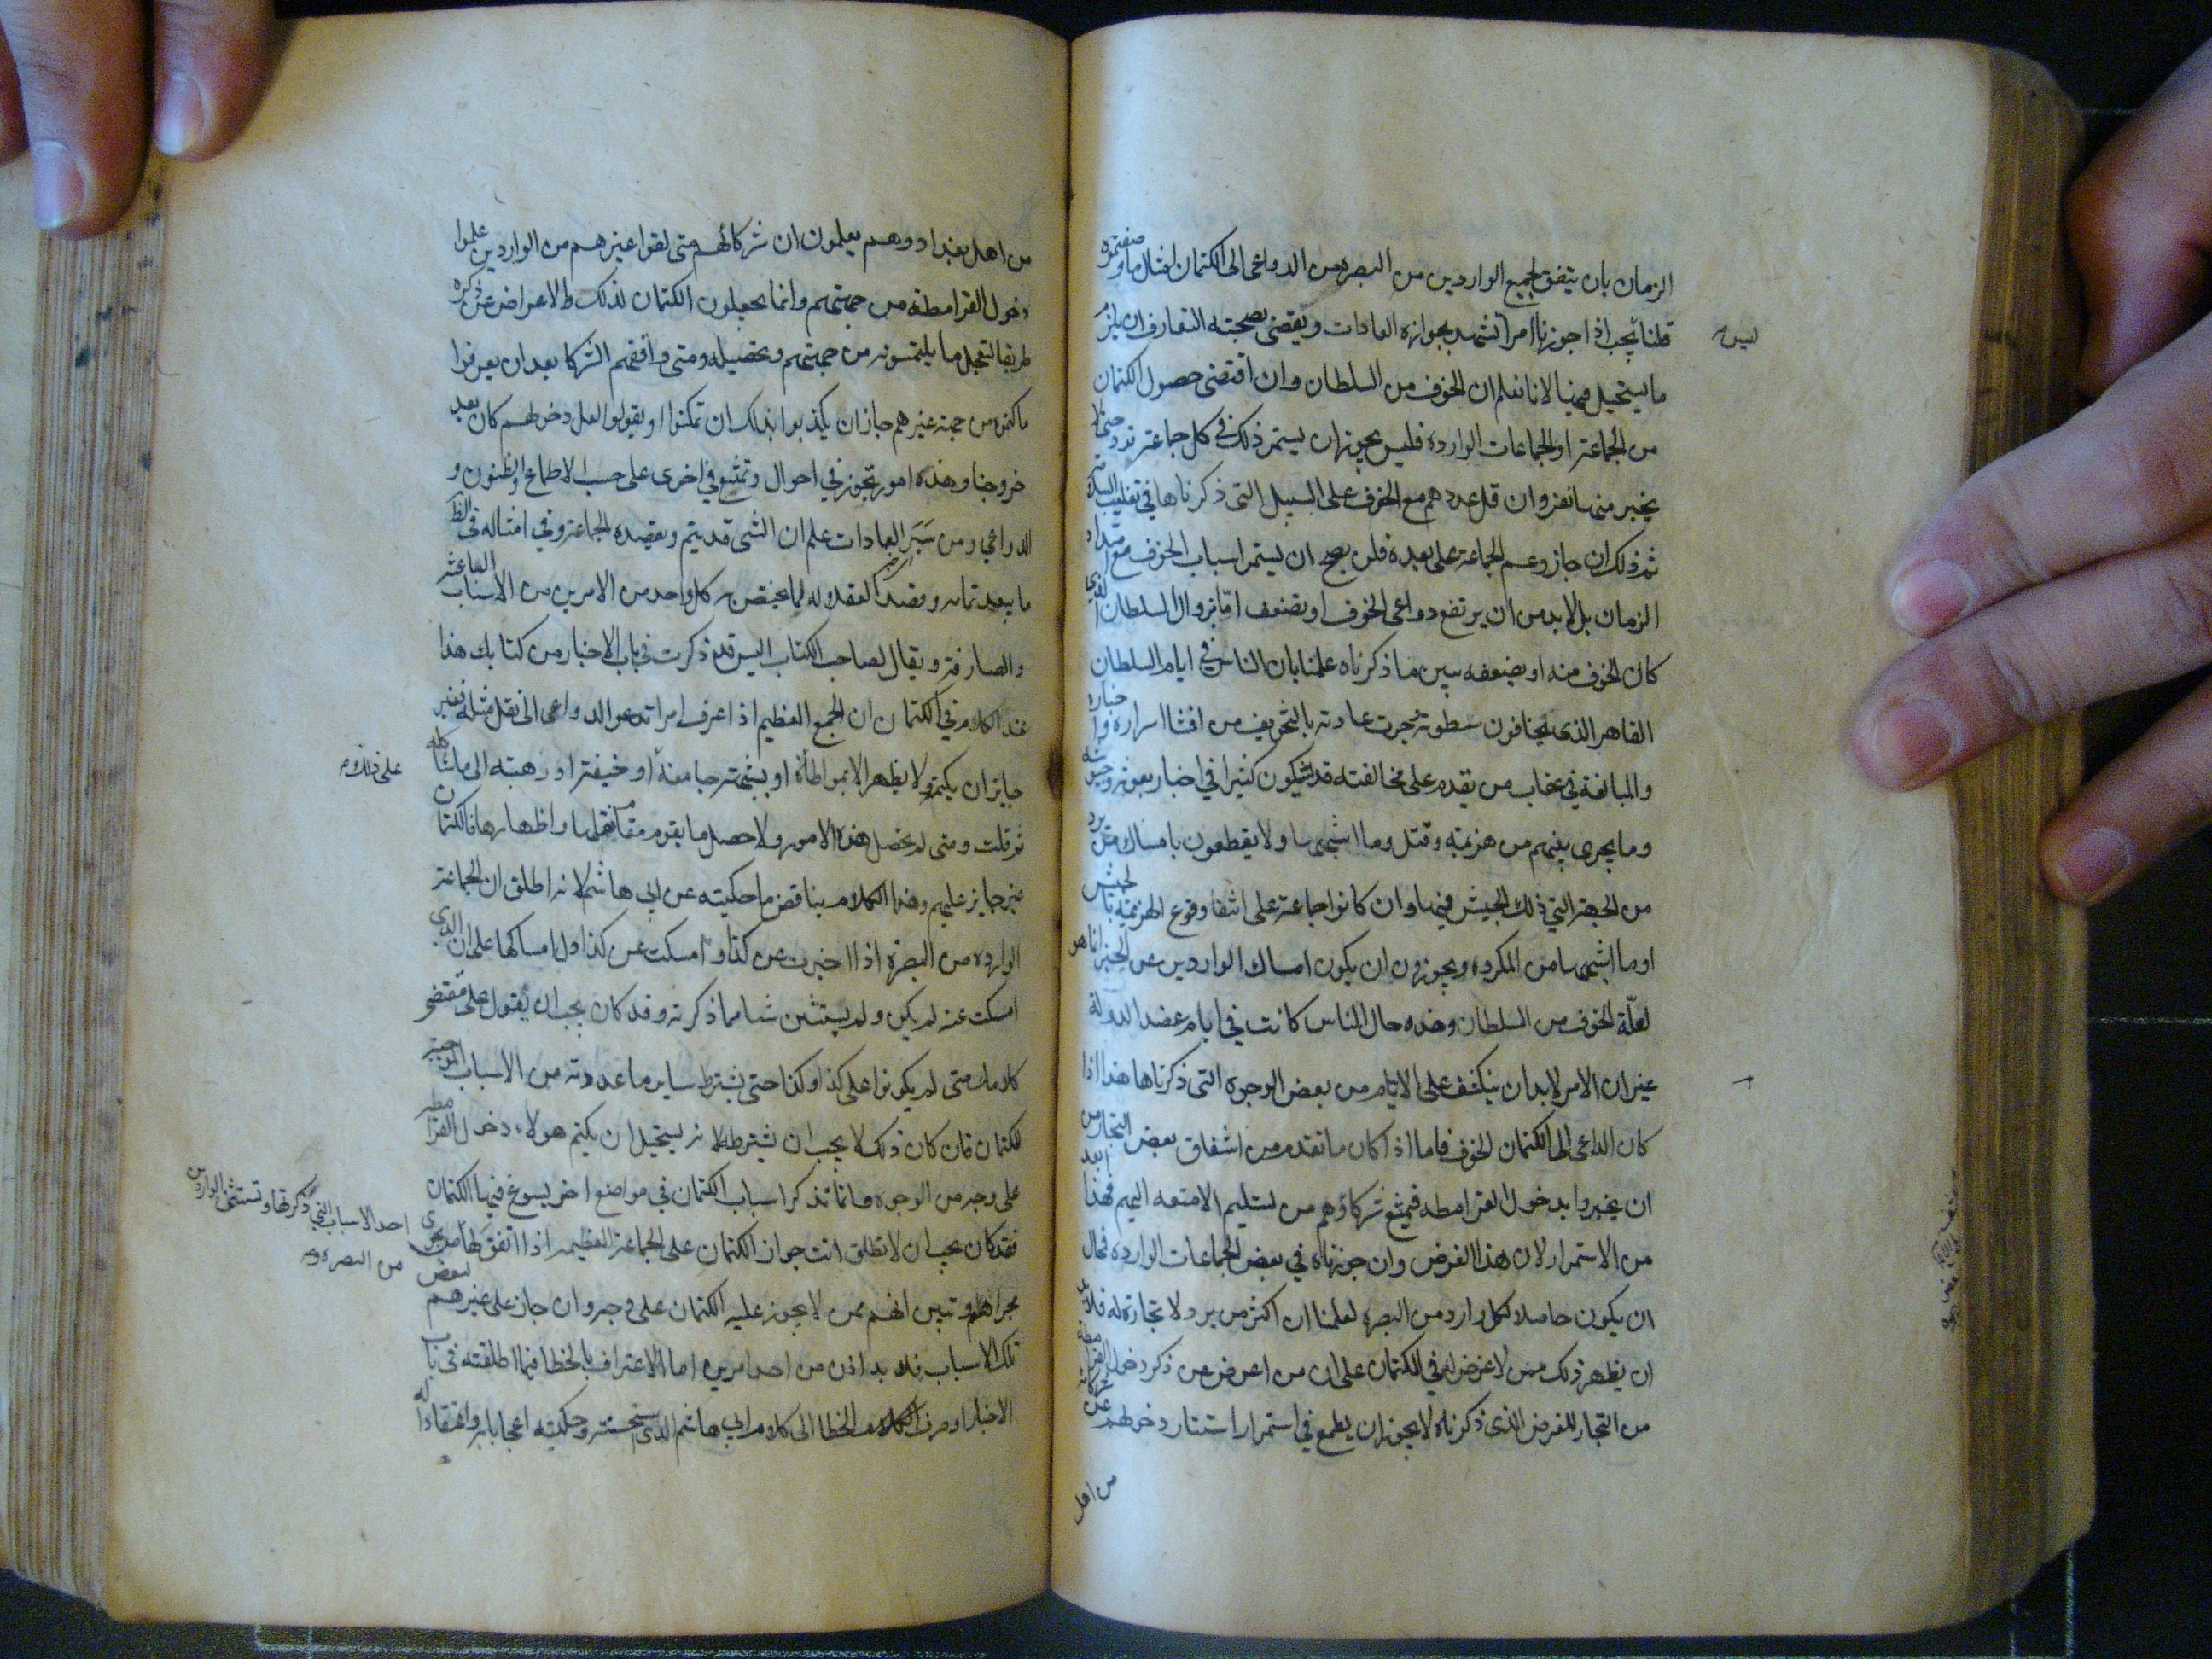 الزمان بان يتفق لجميع الواردين من البصره من الدواعى الى الكتمان امثال ما وصفتموه
قلنا يجب اذا جوزنا امرا تشهد بجوازه العادات ويقضى بصحته التعارف ان يلزم
ليس
ما يستحيل فيها الا نا نعلم ان الخوف من السلطان وان اقتضى حصول الكتمان
من الجماعة او الجماعات الوارده فليس يجوز ان يستمر ذلك فى كل جماعة ترد حتى لا
يخبر منها نفر وان قل عددهم مع الخوف على السبيل التى ذكرناها فى تغليب
ثم ذلك ان جاز وعم الجماعة على بعده فلن يصح ان يستمر اسباب الخوف مع امتداد
الزمان بل لا بد من ان يرتفع دواعى الخوف او يضعف اما بزوال السلطان الذي
كان الخوف منه او بضعفه يبين ما ذكرناه علمنا بان الناس فى ايام السلطان
القاهر الذى يخافون سطوته وجرت عادته بالتخويف من افشا اسراره واخباره
والمبالغة فى عقاب من يقدم على مخالفته قد يشكون كثيرا فى اخبار بعوثه وجيوشه
وما يجرى بينهم من هزيمة وقتل وما اشبهها ولا يقطعون بامساك من يرد
من الجهة التي ذلك الجيش فيها وان كانوا جماعة على انتفا وقوع الهزيمة بالجيش
او ما اشبهها من المكروه ويجوزون ان يكون امساك الواردين عن الخبر انما هو
لعلّة الخوف من السلطان وهذه حال الناس كانت فى ايام عضد الدولة
غير ان الامر لا بد ان ينكشف على الايام من بعض الوجوه التى ذكرناها هذا اذا
كان الداعى الى الكتمان الخوف فاما اذا كان ما تقدم من اشفاق بعض التجار من
ان يخبروا بدخول القرامطه فيمتنع شركاؤهم من تسليم الامتعه اليهم فهذا ابعد
من الاستمرار لان هذا الغرض وان جوزناه في بعض الجماعات الوارده فمحال
ان يكون حاصلا لكل وارد من البصره لعلمنا ان اكثر من يرد لا تجارة له فلا بد
ان يظهر ذلك ممن لا غرض له في الكتمان على ان من اعرض عن ذكر دخول القرامطه
من التجار للغرض الذى ذكرناه لا يجوز ان يطمع في استمرار استتار دخولهم عن شركائه
من اهل
من اهل بغداد وهم يعلمون ان شركائهم متى لقوا غيرهم من الواردين علموا
دخول القرامطة من جهتهم وانما يجعلون الكتمان لذلك والاعراض عن ذكره
طريقا لتعجل ما يلتمسونه من جهتهم وتحصيله ومتى واقفهم الشركا بعد ان يعرفوا
ما كتموه من جهة غيرهم جاز ان يكذبوا بذلك ان تمكنوا او يقولوا لعل دخولهم كان بعد
خروجنا وهذه امور تجوز في احوال وتمتنع في اخرى على حسب الاطماع والظنون و
الدواعي ومن سَبَر العادات علم ان الشى قد يتم ويقصده الجماعة وفي امثاله فى الظ
ما يبعد تمامه وقصد العقلاء له لما يختص به كل واحد من الامرين من الاسباب الباعثه
والصارفة ويقال لصاحب الكتاب اليس قد ذكرت فى باب الاخبار من كتابك هذا
عند الكلام في الكتمان ان الجمع العظيم اذا عرف امرا تدعو الدواعى الى نقل مثله فغير
جايز ان يكتمه ولا يظهر الا بمواطأة او بشبهة جامعة أو خيفة او رهبة الى ما شاكله
على ذلك
ثم قلت ومتى لم يحصل هذه الامور ولا حصل ما يقوم مقامها واظهارها فالكتمان
غير جايز عليهم وهذا الكلام يناقض ما حكيته عن ابي هاشم لانه اطلق ان الجماعة
الوارده من البصرة اذا اخبرت عن كذا وامسكت عن كذا دل امساكها على ان الذي
امسكت عنه لم يكن ولم يستثن شيا مما ذكرته وقد كان يجب ان يقول على مقتضى
كلامك متى لم يكونوا على كذا وكذا حتى يشترط ساير ما عددته من الاسباب الموجبة
للكتمان فان كان ذلك لا يجب ان يشترطه لانه يستحيل ان يكتم هولاء دخول القرامطه
على وجه من الوجوه وانما تذكر اسباب الكتمان في مواضع اخر يسوغ فيها الكتمان
فقد كان يجب ان لا تطلق انت جواز الكتمان على الجماعة العظيمه اذا اتفق لها
احد الاسباب التي ذكرتها وتستثنى الواردين
من البصره ومن
مجراهم وتبين انهم ممن لا يجوز عليه الكتمان على وجه وان جاز على غيرهم لبعض
تلك الاسباب فلا بد اذن من احد امرين اما الاعتراف بالخطا فيما اطلقته فى باب
الاخبار او صرف الخطا الى كلام ابي هاشم الذى استحسنته وحكيته اعجابا به واعتقادا له